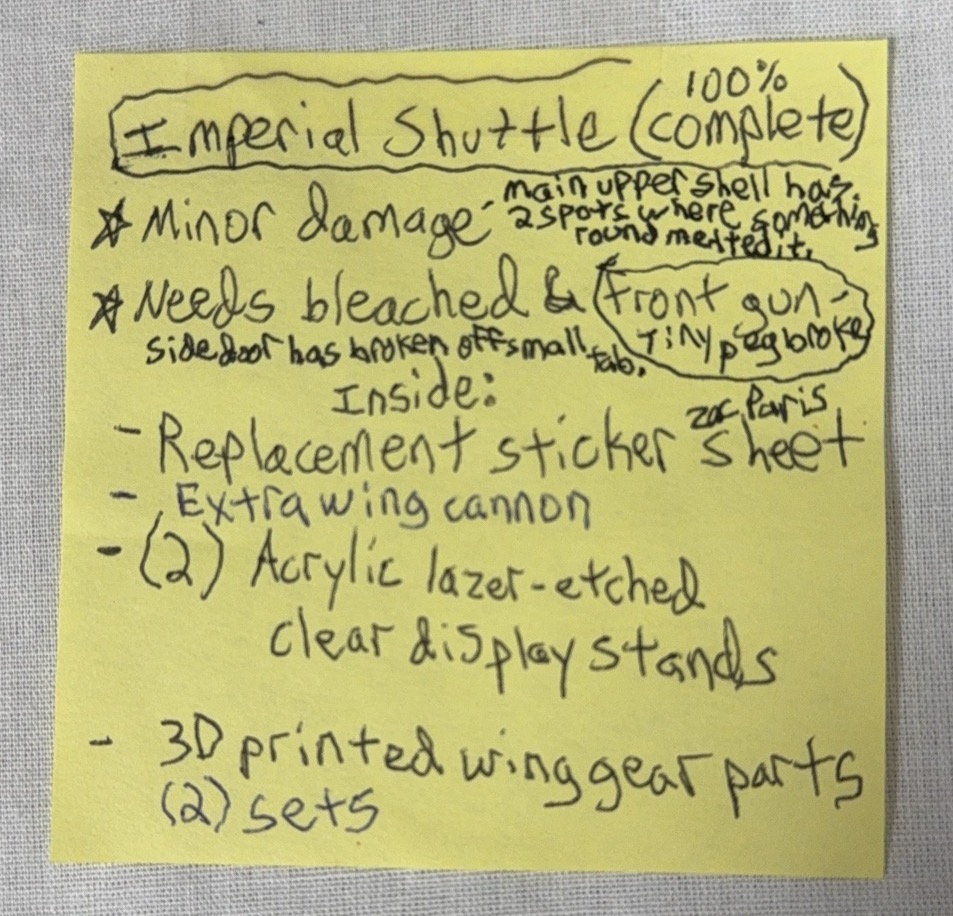 Imperial Shuttle (100% complete)
* Minor damage - main upper shell has
2 spots where something
round melted it.
* Needs bleached & front gun -
Tiny peg broke
side door has broken off small tab.
Inside:
- Replacement sticker sheet
zac Paris
- Extra wing cannon
- (2) Acrylic lazer-etched
clear display stands
- 3D printed wing gear parts
(2) sets